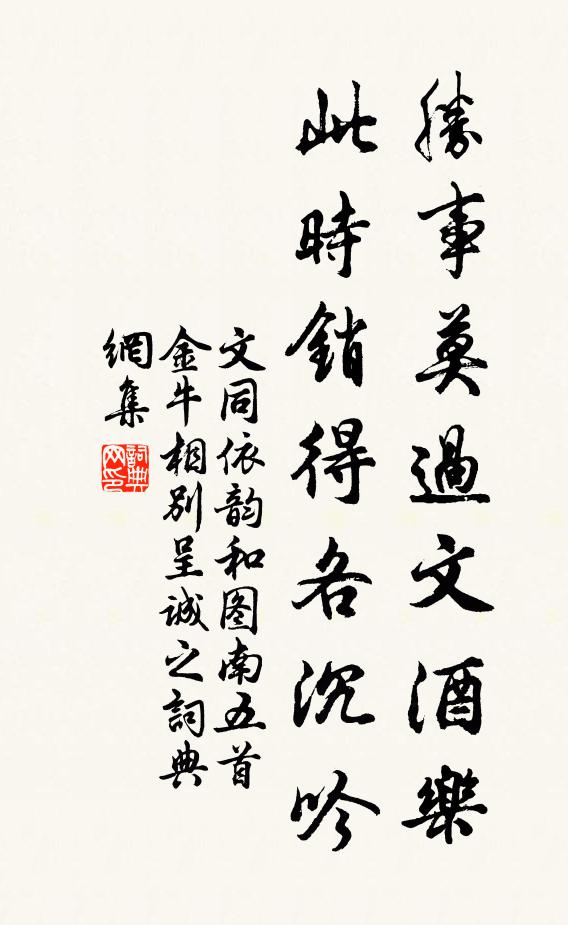 勝事莫過文酒樂
此時銷得各沉吟
文同依韵和图南五首
金牛相別呈诚之詞典
網集
詞典网印